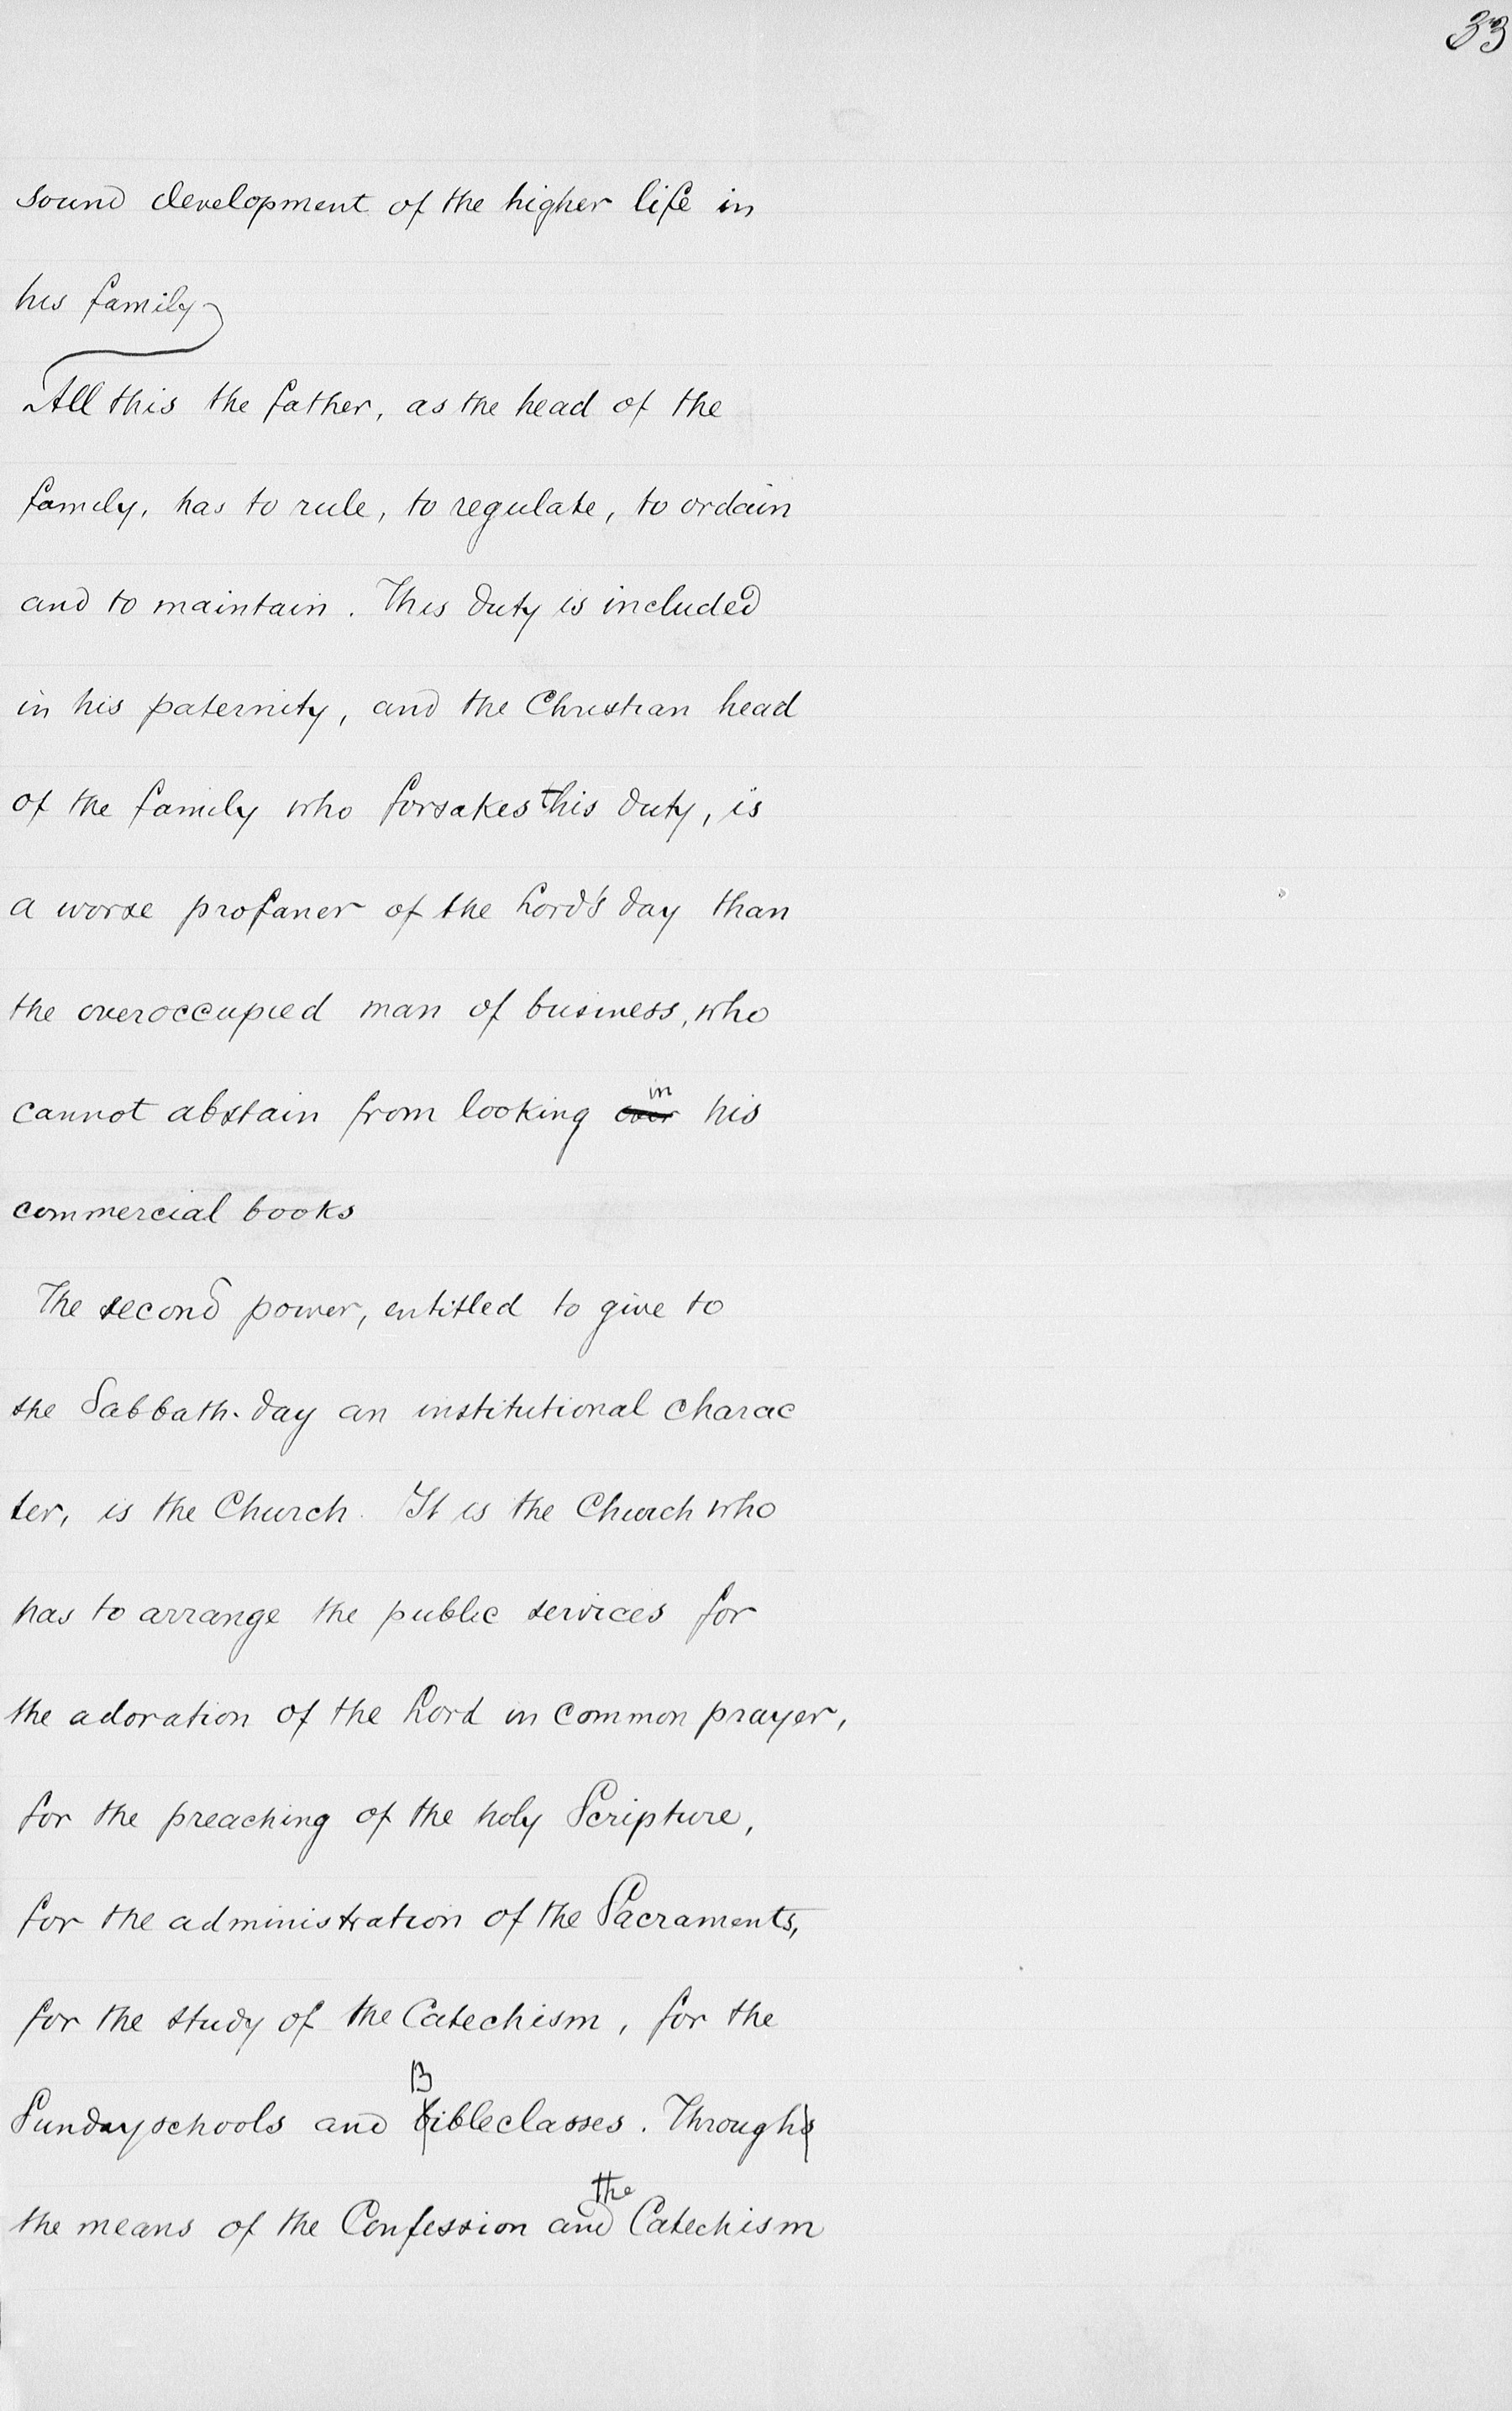 33
sound development of the higher life in
his family
All this the father, as the head of the
family, has to rule, to regulate, to ordain
and to maintain. This duty is included
in his paternity, and the Christian head
of the family who forsakes this duty, is
a worse profaner of the Lord's day than
the overoccupied man of business, who
in
cannot abstain from looking over his
commercial books
The second power, entitled to give to
the Sabbath-day an institutional charac
ter, is the Church. It is the Church who
has to arrange the public services for
the adoration of the Lord in common prayer,
for the preaching of the holy Scripture,
for the administration of the Sacraments,
for the study of the Catechism, for the
B
Sundayschools and bibleclasses. Throughs
the
the means of the Confession and Catechism